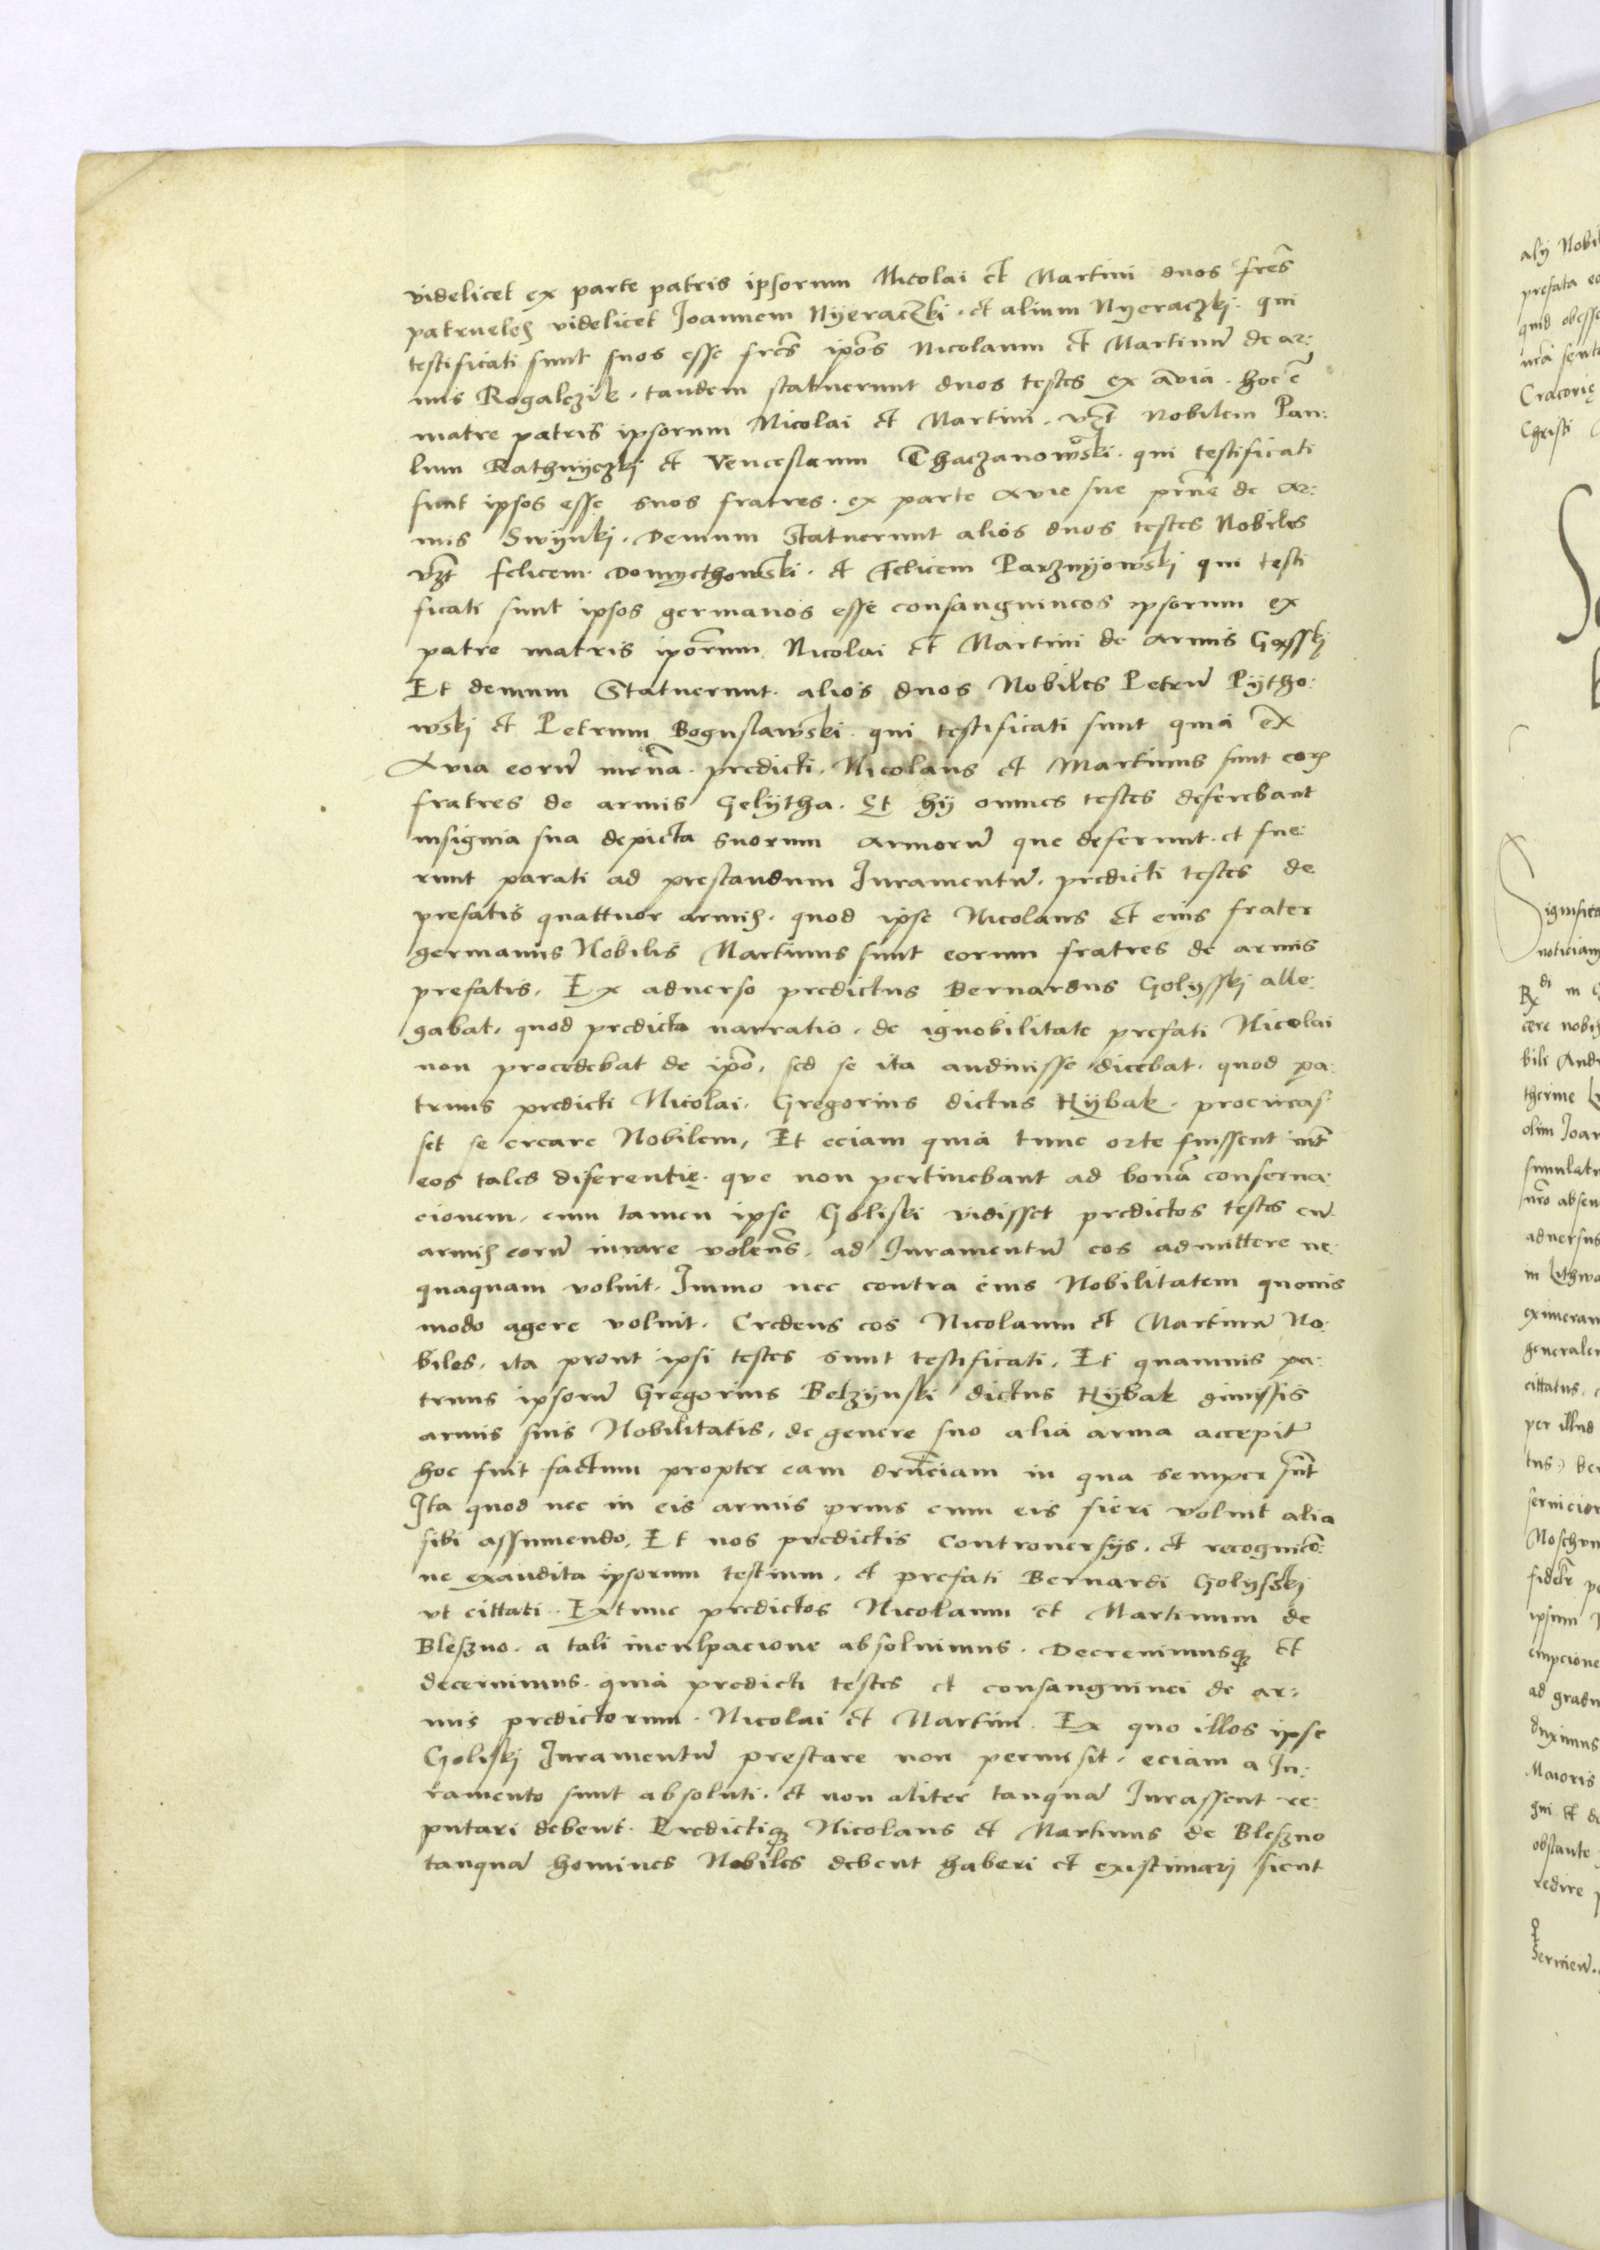 videlicet ex parte patris ipsorum Nicolai et Martini duos fres
patrueles videlicet Joannem Nyeraczki · et alium Nyeraczki · qui
testificati sunt suos esse fres ipos Nicolaum et Martinu de ar:
mis Rogalczik · tandem statuerunt duos testes ex avia · hoc e
matre patris ipsorum Nicolai et Martini · vzt Nobilem Pau:
lum Rathnyczki et Venceslaum Chaczanowski · qui testificati
sunt ipsos esse suos fratres · ex parte avie sue prne de ar:
mis Swynki · Demum Statuerunt alios duos testes Nobiles
vzt felicem Domycthowski · et Felicem Parznyowski qui testi
ficati sunt ipsos germanos esse consanguineos ipsorum ex
patre matris iporum Nicolai et Martini de armis
Et demum Statuerunt · alios duos Nobiles Petru Pytho:
wski et Petrum Boguslawski · qui testificati sunt quia ex
Avia eoru mrna · predicti · Nicolaus et Martinus sunt eorum
fratres de armis Gelytha · Et hij omnes testes deferebant
insignia sua depicta suorum armoru que deferunt · et fue:
runt parati ad prestandum Juramentu · predicti testes de
prefatis quattuor armis · quod ipse Nicolaus et eius frater
germanus Nobilis Martinus sunt eorum fratres de armis
prefatis, Ex aduerso predictus Bernardus Golysski alle:
gabat, quod predicta narratio · de ignobilitate prefati Nicolai
non procedebat de ipo, sed se ita audiuisse dicebat · quod pa:
truus predicti Nicolai · Gregorius dictus Rybak · procuras
set se creare Nobilem, Et eciam quia tunc orte fuissent int
eos tales diferentie · que non pertinebant ad bona conserua:
cionem, cum tamen ipse Goliski vidisset predictos testes cu
armis eoru iurare volens, ad Juramentu eos admittere ne:
quaquam voluit · Immo nec contra eius Nobilitatem quouis
modo agere voluit · Credens eos Nicolaum et Martinu No:
biles, ita prout ipsi testes sunt testificati, Et quamuis pa:
truus ipsoru Gregorius Belzynski dictus Rybak dimissis
armis suis Nobilitatis, de genere suo alia arma accepit
hoc fuit factum propter eam in qua semper
Ita quod nec in eis armis prius cum eis fieri voluit alia
sibi assumendo, Et nos predictis Controuersijs, et recognicio:
ne exaudita ipsorum testium, et prefati Bernardi Golysski
vt cittati · Extunc predictos Nicolaum et Martinum de
Bleszno · a tali inculpacione absoluimus · Decreuimusq et
decernimus · quia predicti testes et consanguinei de ar:
mis predictorum · Nicolai et Martini Ex quo illos ipse
Goliski Juramentu prestare non permisit · eciam a Ju:
ramento sunt absoluti · et non aliter tanqua Jurassent re:
putari debent · Predictiq Nicolaus et Martinus de Bleszno
tanqua homines Nobiles debent haberi et existimari sicut